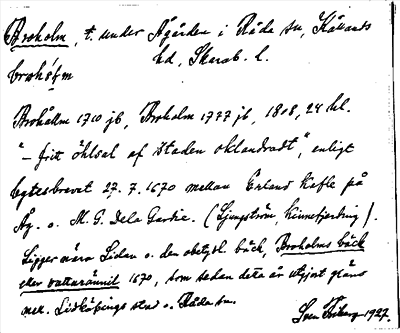 Broholm, t. under Ågården i Råda sn, Kållands
hd, Skarab. l.
brohǫ́ɫm
Brohållm 1710 jb, Broholm 1777 jb, 1808, 24 hl.
"– fritt öhlsal af staden oklandradt", enligt
bytesbrevet 27. 7. 1670 mellan Erland Kafle på
Åg. o. M. G. De la Gardie. (Ljungström, Kinnefjerding).
Ligger nära Lidan o. den obetydl. bäck, Broholms bäck
eller 1670, som sedan dess är utgjort gräns
mel. Lidköpings stad o. Råda sn.
1927.